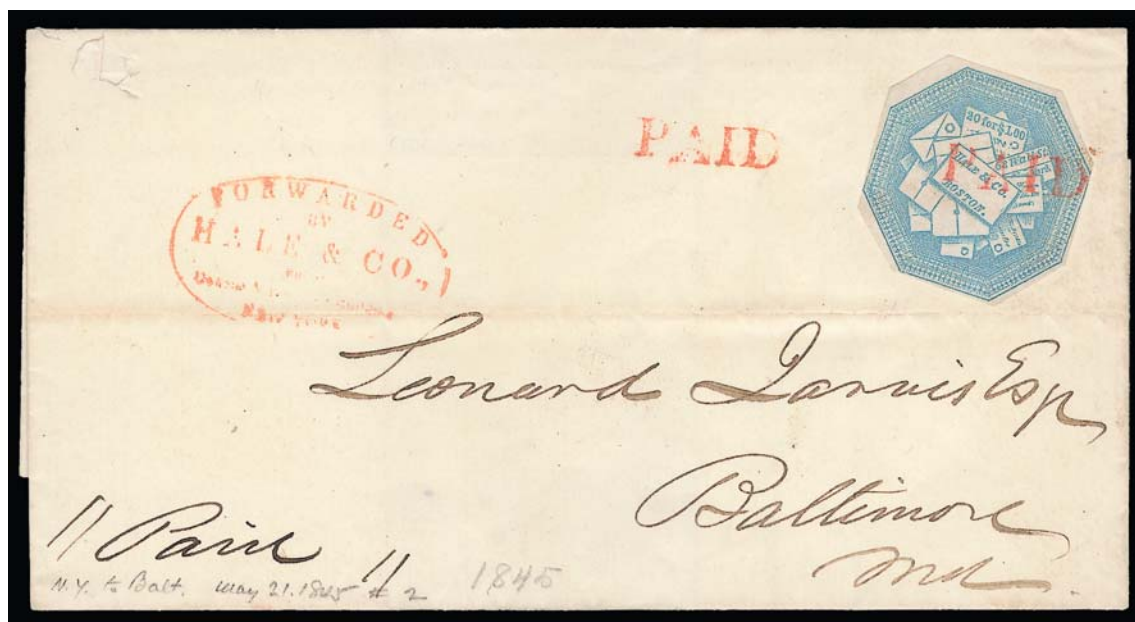 PAID
20 for $1.00
HALE & Co.
BOSTON.
PAID
FORWARDED
BY
HALE & CO.,
FROM
NEW YORK
Leonard Jarvis Esqr
Baltimore
Md.
"Paid"
N.Y. to Balt. May 21. 1845 # 2
1845